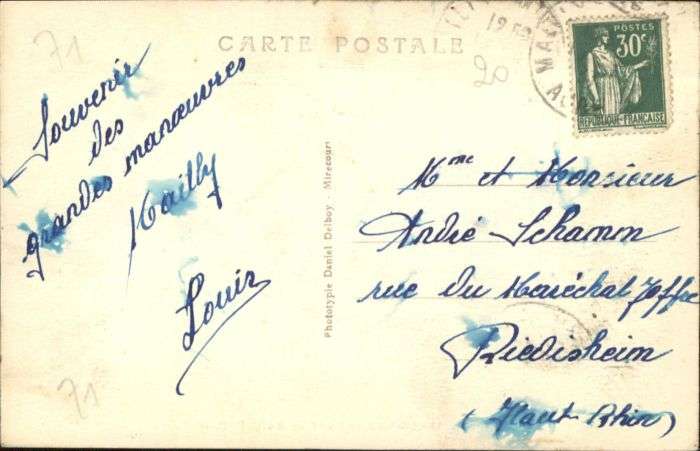 71
CARTE POSTALE
20
POSTES
30c
REPUBLIQUE-FRANÇAISE
Souvenir
des
grandes manœuvres
Mailly
Louis
Phototypie Daniel Delboy - Mirecourt
Mme et Monsieur
André Schamm
rue du Maréchal Joffre
Riedisheim
(Haut Rhin)
71